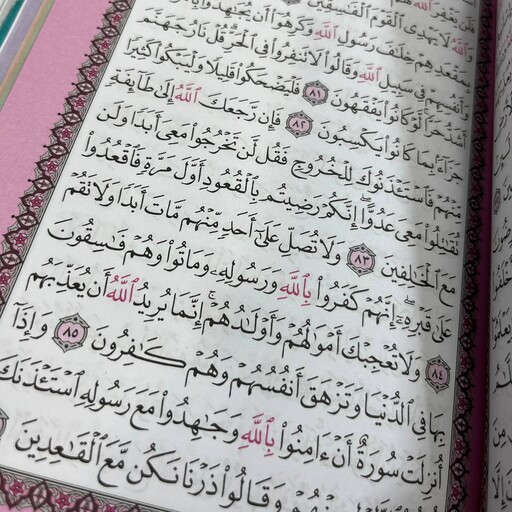 فَلَن يَغْفِرَ ٱللَّهُ لَهُمْ
وَٱللَّهُ لَا يَهْدِى ٱلْقَوْمَ ٱلْفَٰسِقِينَ
بِمَقْعَدِهِمْ خِلَٰفَ رَسُولِ ٱللَّهِ وَكَرِهُوٓا۟ أَن يُجَٰهِدُوا۟
وَأَنفُسِهِمْ فِى سَبِيلِ ٱللَّهِ وَقَالُوا۟ لَا تَنفِرُوا۟ فِى ٱلْحَرِّ قُلْ نَارُ جَهَنَّمَ
أَشَدُّ حَرًّا لَّوْ كَانُوا۟ يَفْقَهُونَ ٨١ فَلْيَضْحَكُوا۟ قَلِيلًا وَلْيَبْكُوا۟ كَثِيرًا
جَزَآءًۢ بِمَا كَانُوا۟ يَكْسِبُونَ ٨٢ فَإِن رَّجَعَكَ ٱللَّهُ إِلَىٰ طَآئِفَةٍ
مِّنْهُمْ فَٱسْتَـْٔذَنُوكَ لِلْخُرُوجِ فَقُل لَّن تَخْرُجُوا۟ مَعِىَ أَبَدًا وَلَن
تُقَٰتِلُوا۟ مَعِىَ عَدُوًّا إِنَّكُمْ رَضِيتُم بِٱلْقُعُودِ أَوَّلَ مَرَّةٍ فَٱقْعُدُوا۟
مَعَ ٱلْخَٰلِفِينَ ٨٣ وَلَا تُصَلِّ عَلَىٰٓ أَحَدٍ مِّنْهُم مَّاتَ أَبَدًا وَلَا تَقُمْ
عَلَىٰ قَبْرِهِۦٓ إِنَّهُمْ كَفَرُوا۟ بِٱللَّهِ وَرَسُولِهِۦ وَمَاتُوا۟ وَهُمْ فَٰسِقُونَ
٨٤ وَلَا تُعْجِبْكَ أَمْوَٰلُهُمْ وَأَوْلَٰدُهُمْ إِنَّمَا يُرِيدُ ٱللَّهُ أَن يُعَذِّبَهُم
بِهَا فِى ٱلدُّنْيَا وَتَزْهَقَ أَنفُسُهُمْ وَهُمْ كَٰفِرُونَ ٨٥ وَإِذَآ
أُنزِلَتْ سُورَةٌ أَنْ ءَامِنُوا۟ بِٱللَّهِ وَجَٰهِدُوا۟ مَعَ رَسُولِهِ ٱسْتَـْٔذَنَكَ
مِنْهُمْ وَقَالُوا۟ ذَرْنَا نَكُن مَّعَ ٱلْقَٰعِدِينَ